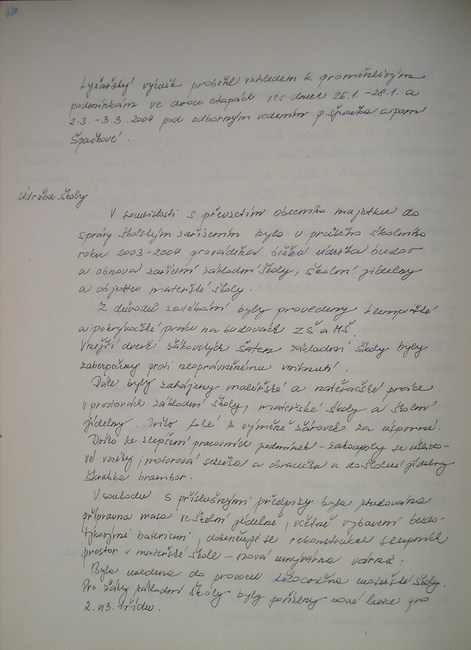 Lyžařský výcvik proběhl vzhledem k proměnlivým
podmínkám ve dvou etapách ve dnech 26.1.-28.1. a
2.3.-3.3.2004 pod odborným vedením p. Špačka a paní
Špačkové.
Údržba školy
V souvislosti s převzetím obecního majetku do
správy školským zařízením byla v průběhu školního
roku 2003-2004 prováděna běžná údržba budov
a obnova zařízení základní školy, školní jídelny
a objektu mateřské školy.
Z důvodů zatékání byly provedeny klempířské
a pokrývačské práce na budovách ZŠ a MŠ.
Vnější dveře žákovských šaten základní školy byly
zabezpečeny proti neoprávněnému vniknutí.
Dále byly zahájeny malířské a natěračské práce
v prostorách základní školy, mateřské školy a školní
jídelny. Došlo také k výměně žárovek za úsporné.
Došlo ke zlepšení pracovních podmínek - zakoupily se
vozíky, motorová sekačka a do školní jídelny
škrabka brambor.
V souladu s příslušnými předpisy byla
přípravna masa ve školní jídelně, včetně vybavení
bateriemi, dokončuje se rekonstrukce sklepních
prostor v mateřské škole - nová
Byla uvedena do provozu mateřské školy.
Pro žáky základní školy byly pořízeny nové lavice pro
2. a 3. třídu.